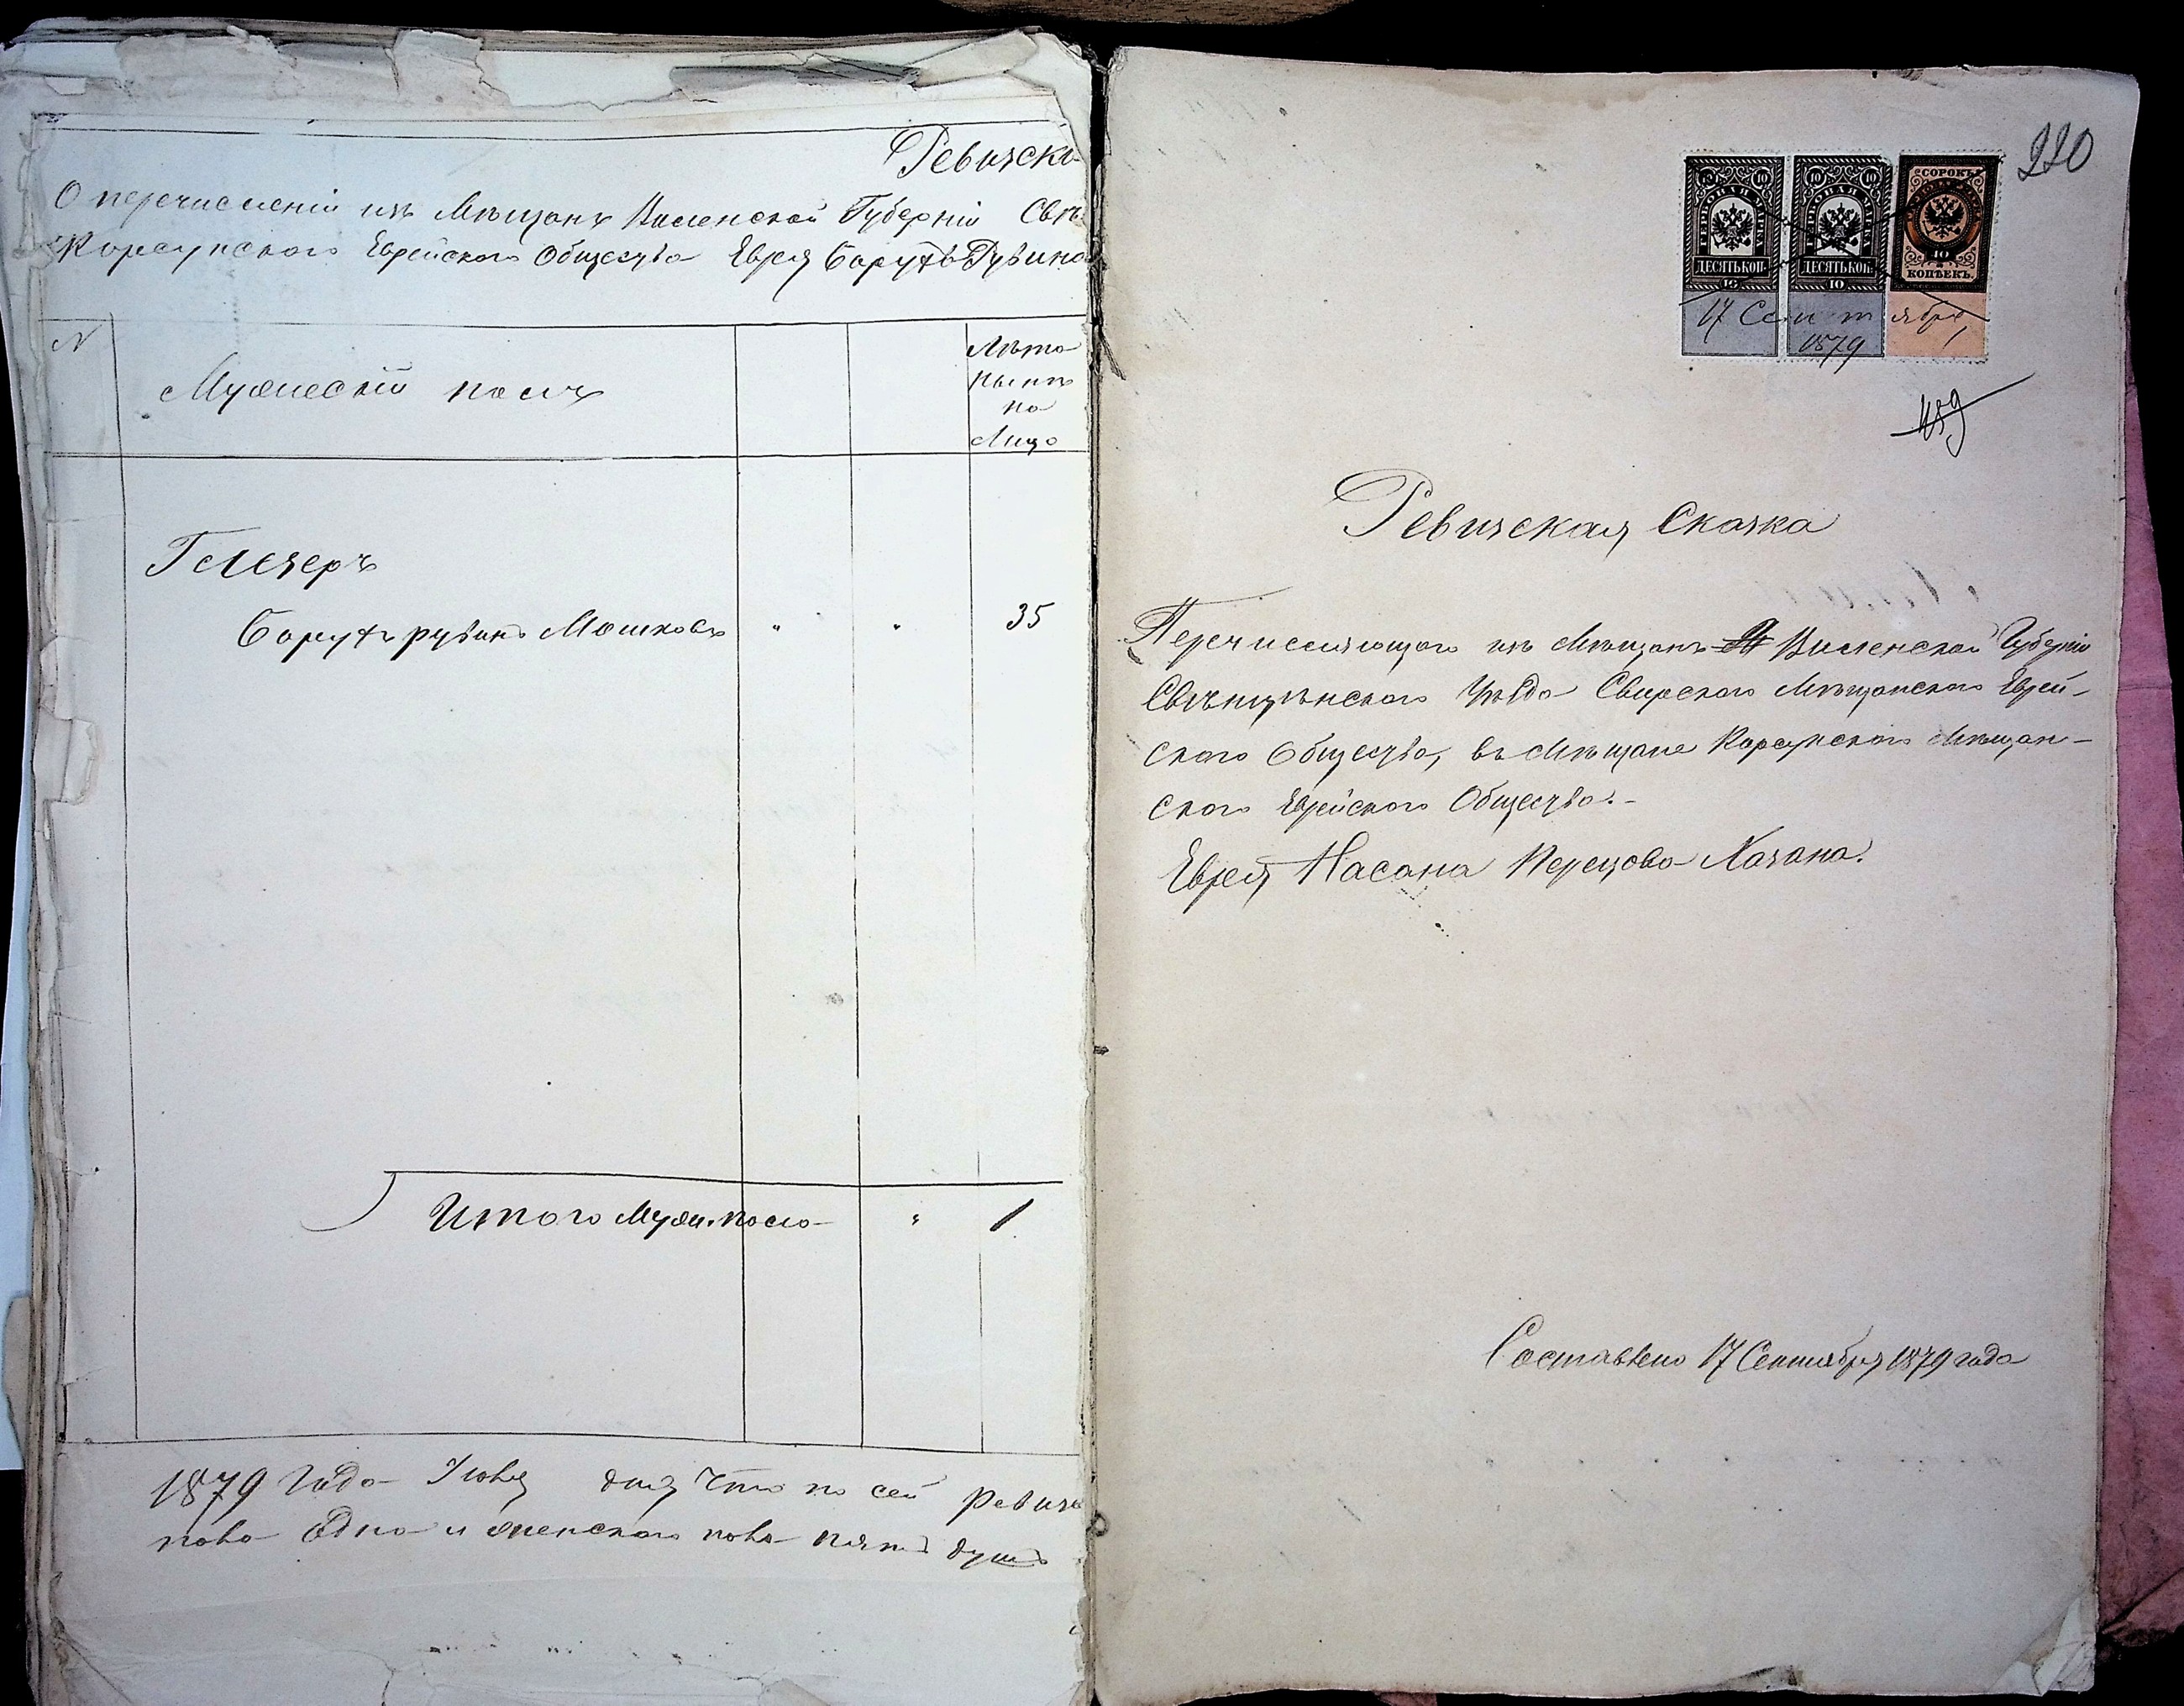 Ревизска
О перечисленіи изъ Мѣщанъ Виленской Губерніи Свѣ
Корсунского Еврейского Общества Еврея Борухъ Рувина
N
Мужескій полъ
Лѣта
нынѣ
на
Лицо
Гелезеръ
Борухъ рувинъ Мошковъ " " 35
Итого Муж. пола " 1
1879 Года Іюля дня Что по сей ревизс
пола Одна и женского пола пять душъ
220
СОРОКЪ
ДЕСЯТЬ КОП. ДЕСЯТЬ КОП. КОПѢЕКЪ.
10 10
17 Сентября
1879
159
Ревизская Сказка
Перечисляющаго изъ Мѣщанъ Виленской Губерніи
Свѣнцянского Уѣзда Свирского Мѣщанского Еврей-
ского Общества, въ Мѣщане Корсунского Мѣщан-
ского Еврейского Общества.-
Еврея Насана Перецова Хазана.
Составлено 17 Сентября 1879 года